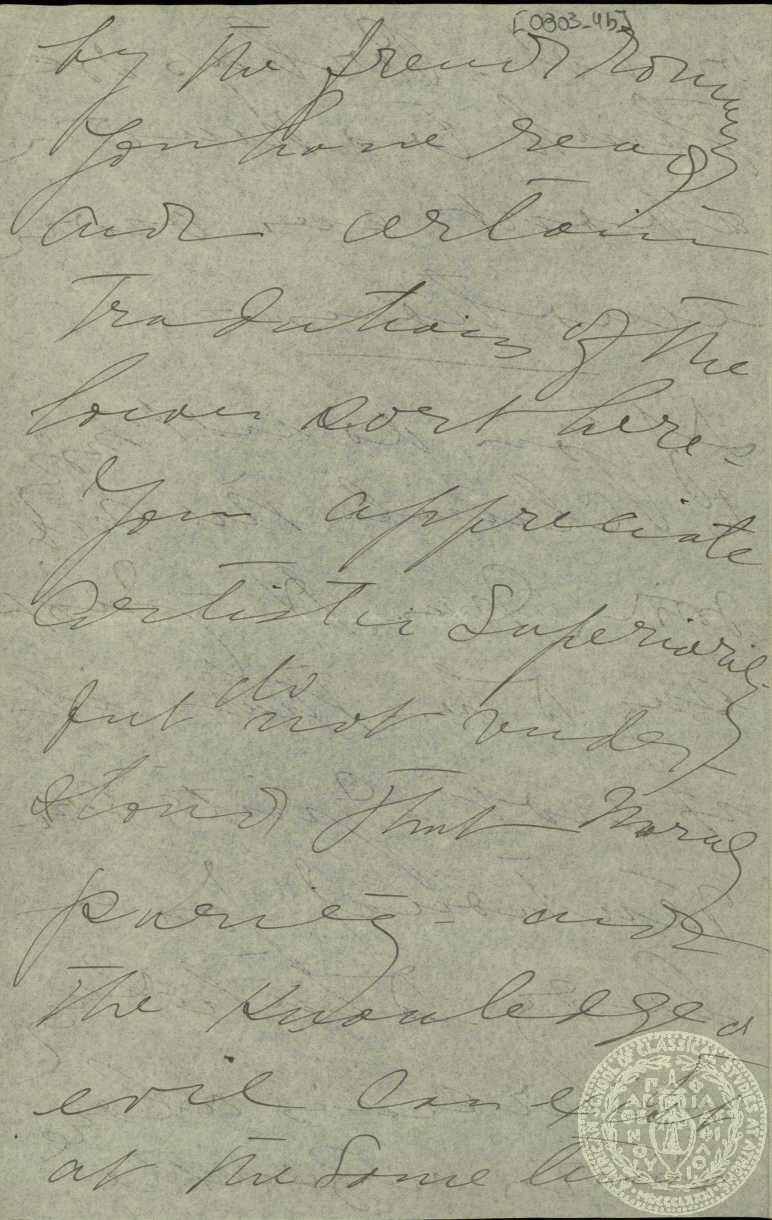 [0303_4b]
by the french
you have read
and certain
Tradutions of the
lower sort here-
You appreciate
artistic Superiority
but do not under-
stand that Moral
purity - and
the Knowledge of
evil can exist
at the Same time
AMERICAN SCHOOL OF CLASSICAL STUDIES AT ATHENS
MDCCCLXXXI